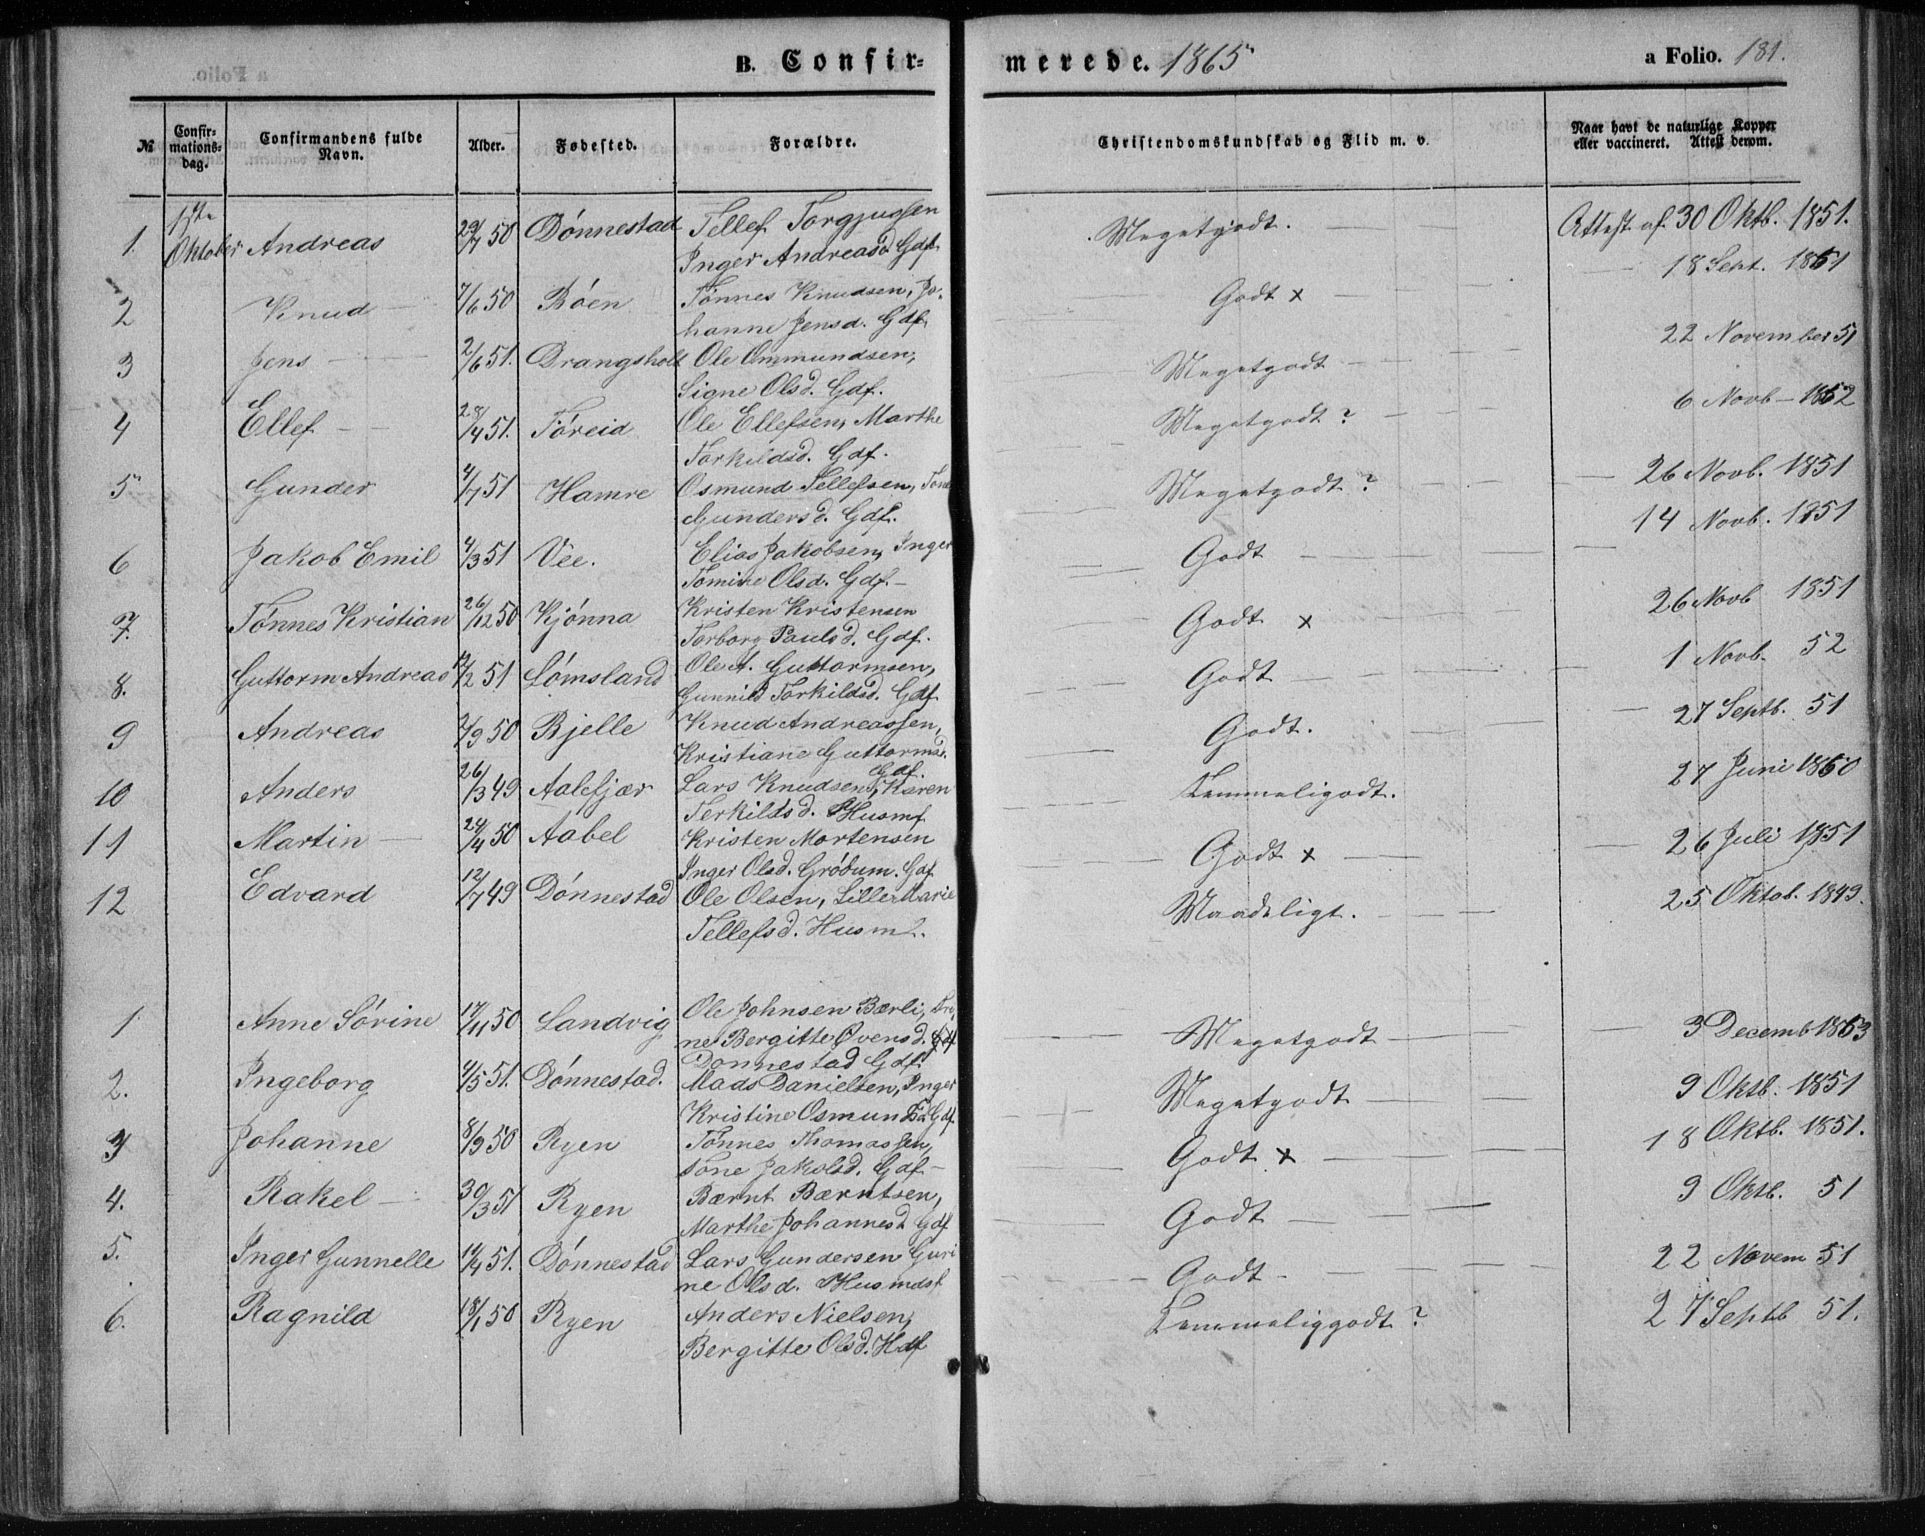 B. Confir-
merede. 1865
a Folio. 181.
№ Confir-mations-dag. Confirmandens fulde Navn. Alder. Fødested. Forældre. Christendomskundskab og Flid m. v. Naar havt de naturlige Kopper eller vaccineret. Attest derom.
1. 1ste Oktober Andreas 29/7 50 Dønnestad Tellef Torgjusen Megetgodt. Attest af 30 Oktb. 1851.
Inger Andreasd. Gdf.
2 Knud 7/6 50 Røen Tønnes Knudsen, Jo- Godt x 18 Sept. 1851
hanne Jensd. Gdf.
3 Jens 2/6 51. Drangsholt Ole Ommundsen, Megetgodt 22 November 51
Signe Olsd. Gdf.
4 Ellef 28/4 51. Føreid Ole Ellefsen, Marthe Megetgodt? 6 Novb 1852
Torkildsd. Gdf.
5 Gunder 4/7 51 Hamre Osmund Tellefsen, Tone Megetgodt? 26 Novb. 1851
Gundersd. Gdf.
6 Jakob Emil 4/3 51 Vee. Elias Jakobsen, Inger Godt 14 Novb. 1851
Tomine Olsd. Gdf.
7. Tønnes Kristian 26/12 50 Kjønna Kristen Kristensen Godt x 26 Novb 1851
Torborg Paulsd. Gdf.
8. Guttorm Andreas /2 51 Lømsland Ole A. Guttormsen, Godt 1 Novb. 52
Gunnild Torkildsd. Gdf.
9 Andreas /9 50 Bjelle Knud Andreassen, Godt. 27 Septb. 51
Kristiane Guttormsd. Gdf.
10 Anders 26/3 49 Aalefjær Lars Knudsen, Karen Temmeligodt. 27 Juni 1860
Terkildsd. Husmf.
11 Martin 24/4 50 Aabel Kristen Mortensen Godt x 26 Juli 1851
Inger Olsd. Grødum. Gdf.
12 Edvard 12/7 49 Dønnestad Ole Olsen, Lille Marie Maadeligt. 25 Oktob. 1849.
Tellefsd. Husmf.
1 Anne Sørine 17/11 50 Landvig Ole Johnsen Bærli, Tro- Megetgodt 3 Decemb 1853
ne Bergitte Øvensd. Gdf
Dønnestad Gdf.
2. Ingeborg 4/5 51. Dønnestad. Mads Danielsen, Inger Megetgodt 9 Oktb. 1851
Kristine Osmundsd. Gdf.
3 Johanne 8/9 50 Ryen Tønnes Thomassen, Godt x 18 Oktb. 1851.
Tone Jakobsd. Gdf
4. Rakel 30/3 51 Ryen Bærnt Bærntsen, Godt 9 Oktb. 51
Marthe Johannesd. Gdf
5. Inger Gunnelle 14/4 51. Dønnestad Lars Gundersen Guri Godt 22 Novem 51
ne Olsd. Husmdsf
6. Ragnild 18/1 50 Ryen Anders Nielsen, Temmeliggodt? 27 Septb 51.
Bergitte Olsd. Hdf